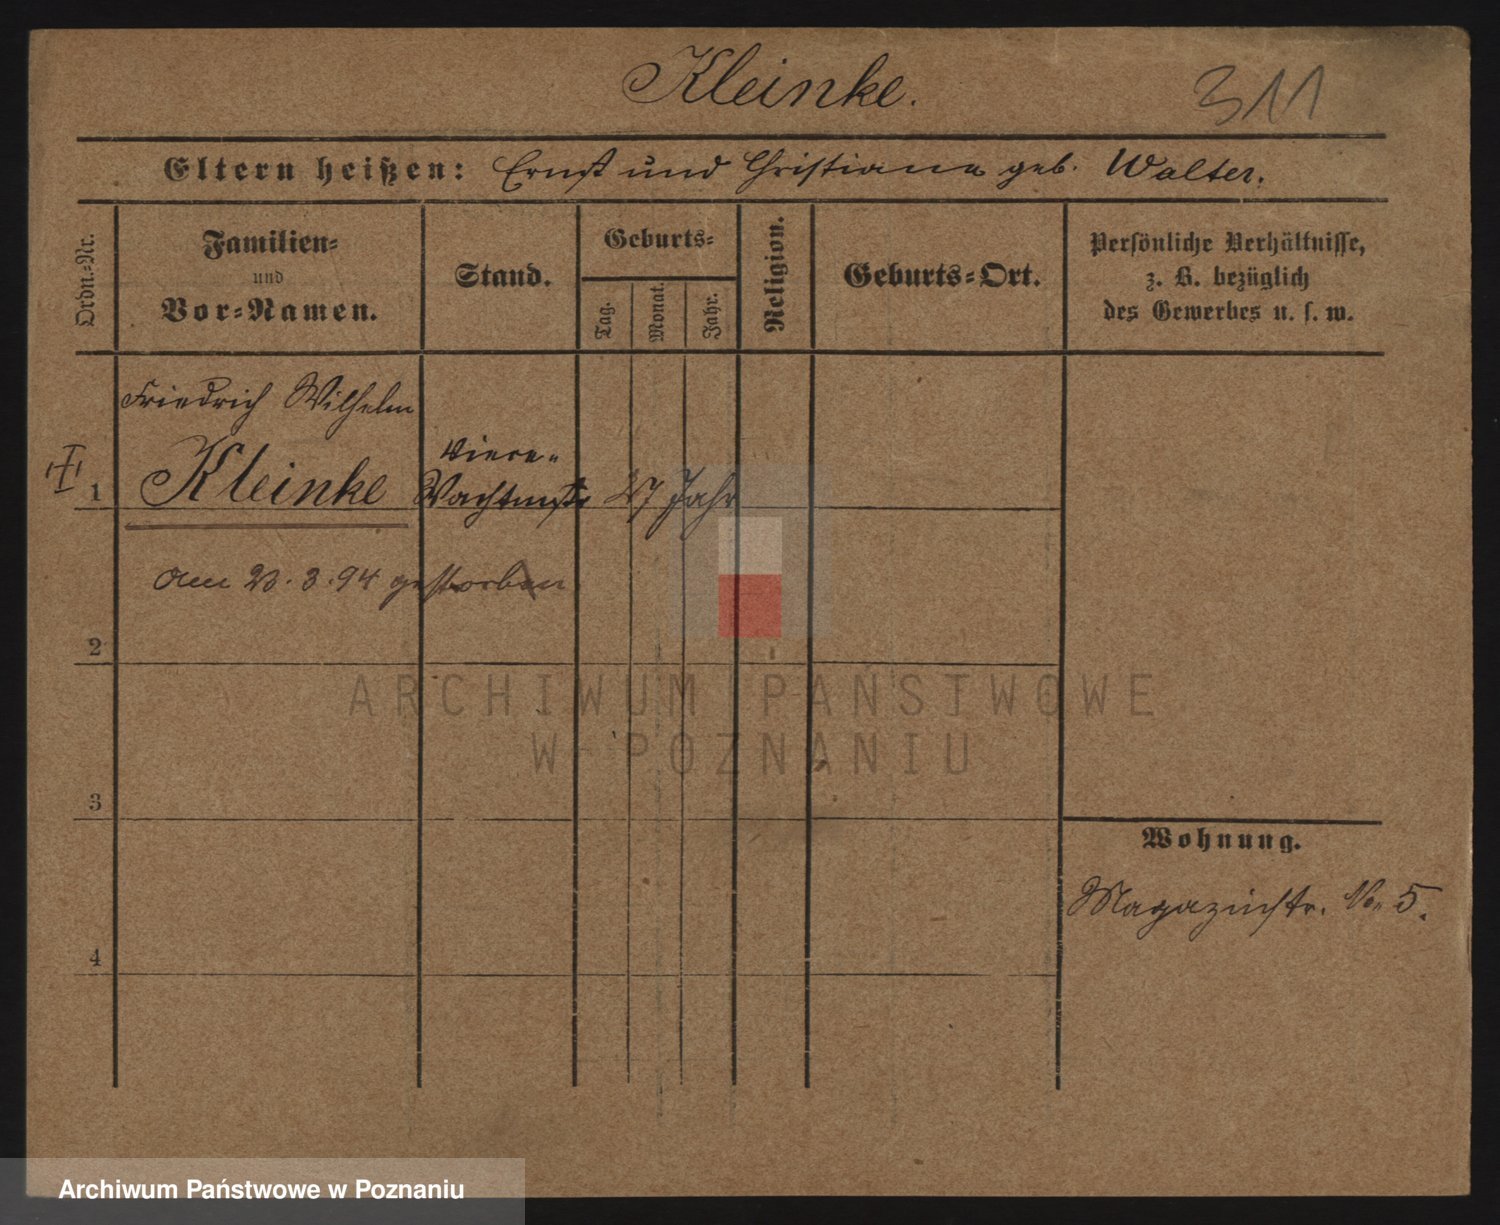 Kleinke.
311
Eltern heißen: Ernst und Christiane geb. Walter.
Ordn.-Nr.
Familien-
und
Vor-Namen.
Stand.
Geburts-
Tag.
Monat.
Jahr.
Religion.
Geburts-Ort.
Persönliche Verhältnisse,
z. B. bezüglich
des Gewerbes u. s. w.
Friedrich Wilhelm
1 Kleinke
Wachtmstr 27 Jahr
am 23.3.94 gestorben
2
3
4
Wohnung.
Magazinstr. No. 5.
ARCHIWUM PAŃSTWOWE
W POZNANIU
Archiwum Państwowe w Poznaniu